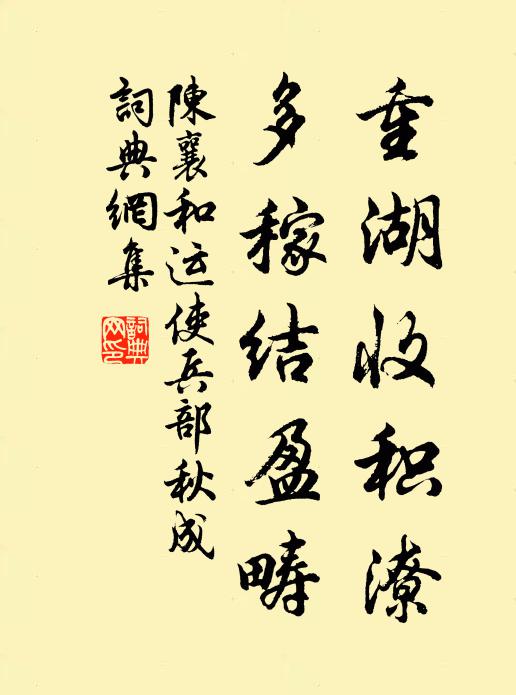 重湖收积潦
多稼结盈畴
陳襄和运使兵部秋成
詞典網集
詞典
网印